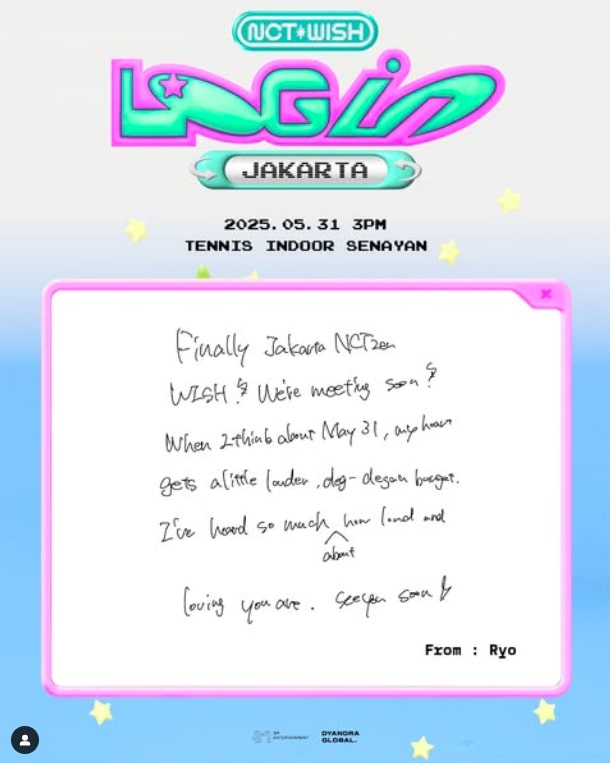 NCT WISH
LOG in
JAKARTA
2025.05.31 3PM
TENNIS INDOOR SENAYAN
Finally Jakarta NCTzen
WISH! We're meeting soon!
When I think about May 31, my heart
gets a little louder, deg-degan banget.
I've heard so much how loud and
about
loving you are. see you soon!
From : Ryo
SM ENTERTAINMENT
DYANDRA
GLOBAL.